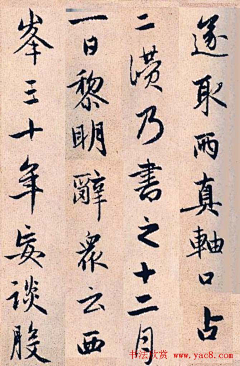 遂取两真軸口占
二讚乃書之十二月
一日黎明辭衆云西
峯三十年妄談般
书法欣赏
www.yac8.com